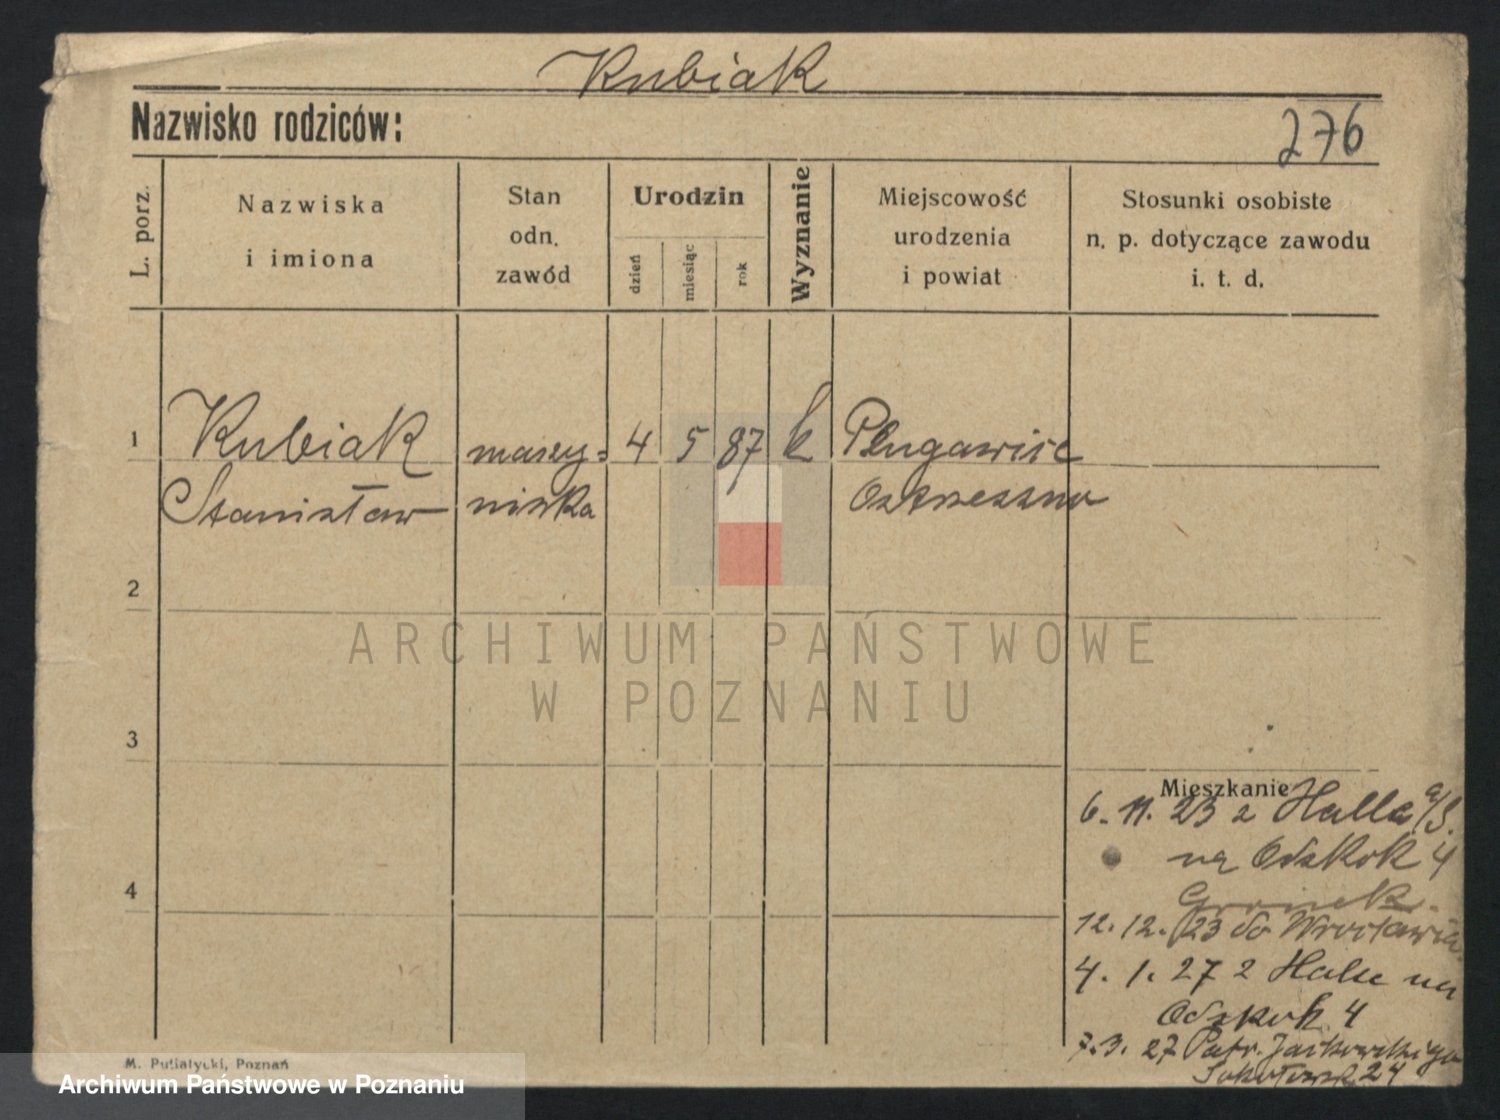 Kubiak
Nazwisko rodziców:
276
L. porz.
Nazwiska
i imiona
Stan
odn.
zawód
Urodzin
dzień
miesiąc
rok
Wyznanie
Miejscowość
urodzenia
i powiat
Stosunki osobiste
n. p. dotyczące zawodu
i. t. d.
1
Kubiak
maszy=
4 5 87 k
Pługawice
Stanisław
nistka
2
ARCHIWUM PAŃSTWOWE
W POZNANIU
3
Mieszkanie
6. 11. 23 z Halla a/S.
na Odskok 4
4
12. 12. 23 do Wrocławia
4. 1. 27 z Halle na
Odskok 4
7. 3. 27 Patr. Jackowskiego
24
M. Putiatycki, Poznań
Archiwum Państwowe w Poznaniu